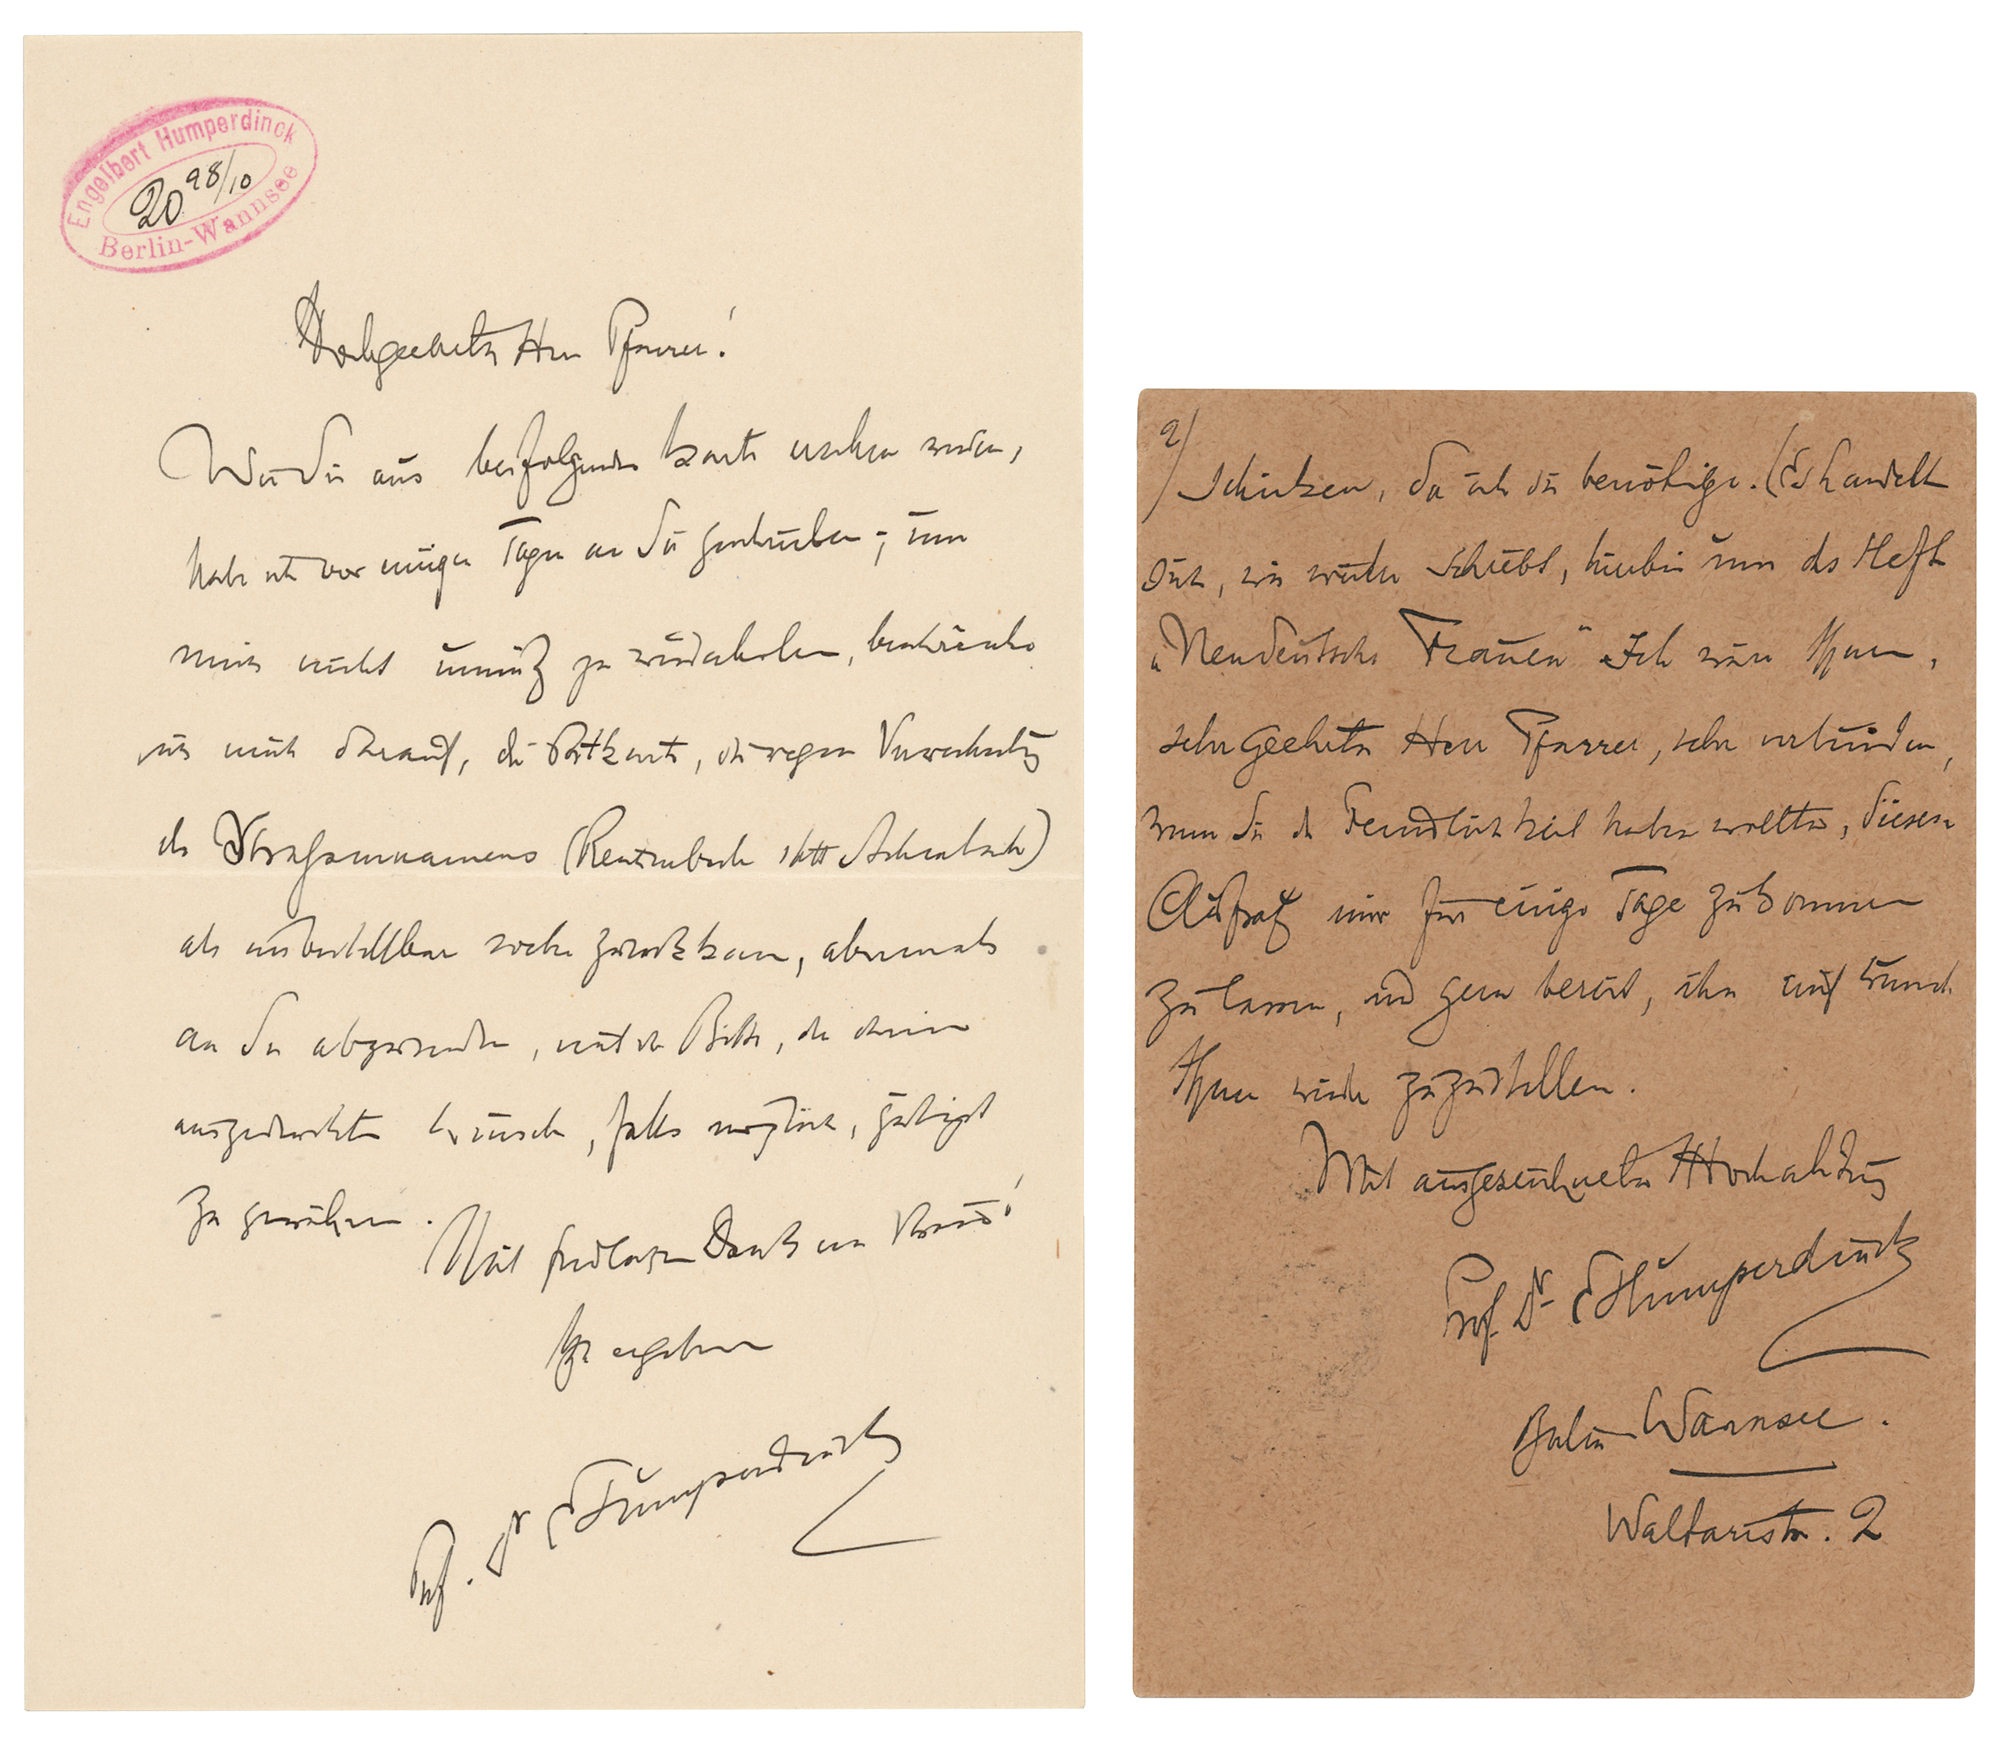 Engelbert Humperdinck
20 98/10
Berlin-Wannsee
Hochgeehrter Herr Pfarrer!
Wie Sie aus beifolgender Karte ersehen werden,
habe ich vor einigen Tagen an Sie geschrieben; um
mich nicht unnütz zu wiederholen, beschränke
ich mich darauf, die Postkarte, die wegen Verwechslung
des Straßennamens (Rentzenbach statt Achenbach)
als unbestellbar wieder zurückkam, abermals
an Sie abzusenden, mit der Bitte, den darin
ausgedrückten Wunsch, falls möglich, gütigst
zu gewähren.
Mit Dank im Voraus!
Ihr ergebener
Prof. Dr EHumperdinck
2)
schicken, da ich sie benötige. (Es handelt
sich, wie er schreibt, hierbei um das Heft
„Neudeutsche Frauen" Ich wäre Ihnen,
sehr geehrter Herr Pfarrer, sehr verbunden,
wenn Sie die Freundlichkeit haben wollten, diesen
Aufsatz mir für einige Tage zukommen
zu lassen, und gern bereit, ihn auf Wunsch
Ihnen wieder zuzustellen.
Mit ausgezeichneter Hochachtung
Prof. Dr EHumperdinck
Berlin Wannsee.
Waltharistr. 2